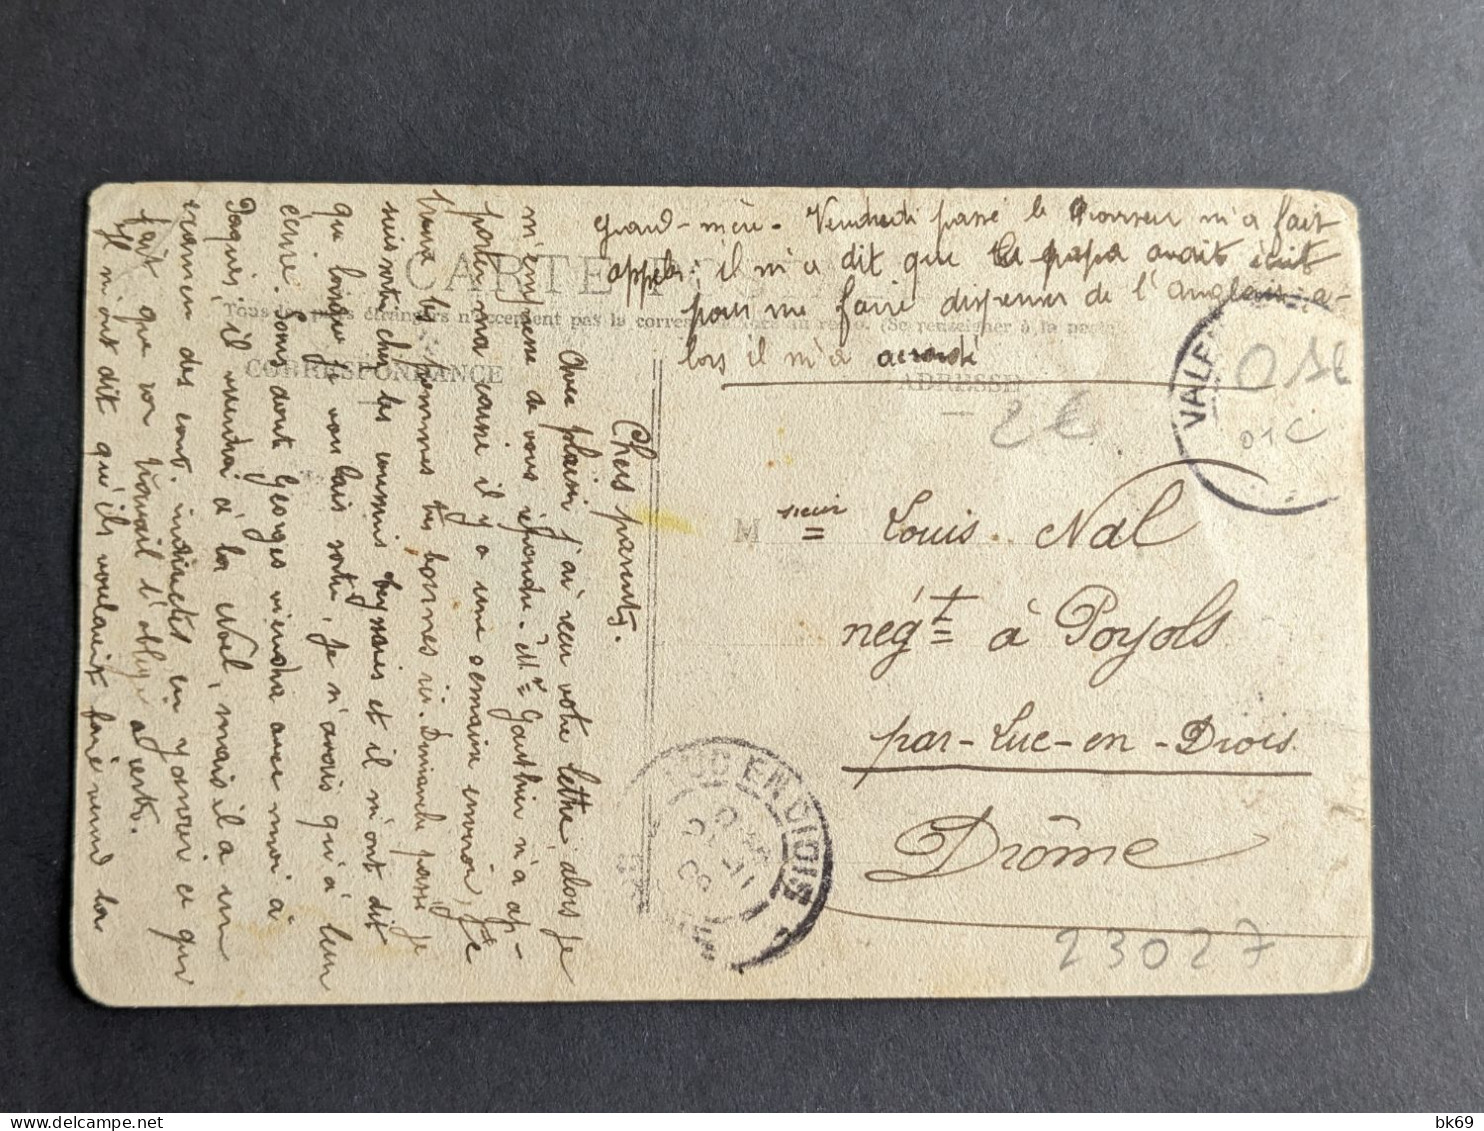 Chers parents,
Avec plaisir j'ai reçu votre lettre alors je
m'empresse de vous répondre. Mr Gauthier n'a ap-
porter ma caisse il y a une semaine environ, je
trouve les pommes très bonnes ici. Dimanche passé je
suis sorti chez les cousins et il m'ont dit
que lorsque je vous fais sortir, je n'avais qu'à leur
écrire. Sans doute Georges viendra avec moi à
Paques, il viendra à la Noël, mais il a un
examen des cont. indirectes en janvier ce qui
fait que son travail l'oblige
Il m'ont dit qu'ils voulaient faire venir la
grand-mère. Vendredi passé le Monsieur m'a fait
appeler. il m'a dit que le papa avait écrit
pour me faire dispenser de l'anglais a-
lors il m'a accordé
CARTE PO
Tous les pays étrangers n'acceptent pas la correspondance au recto. (Se renseigner à la poste)
CORRESPONDANCE
ADRESSE
2€
VALE
01C
Msieur Louis Nal
négt à Poyols
par-Luc-en-Diois
Drôme
LUC EN DIOIS
09
23027
bk69